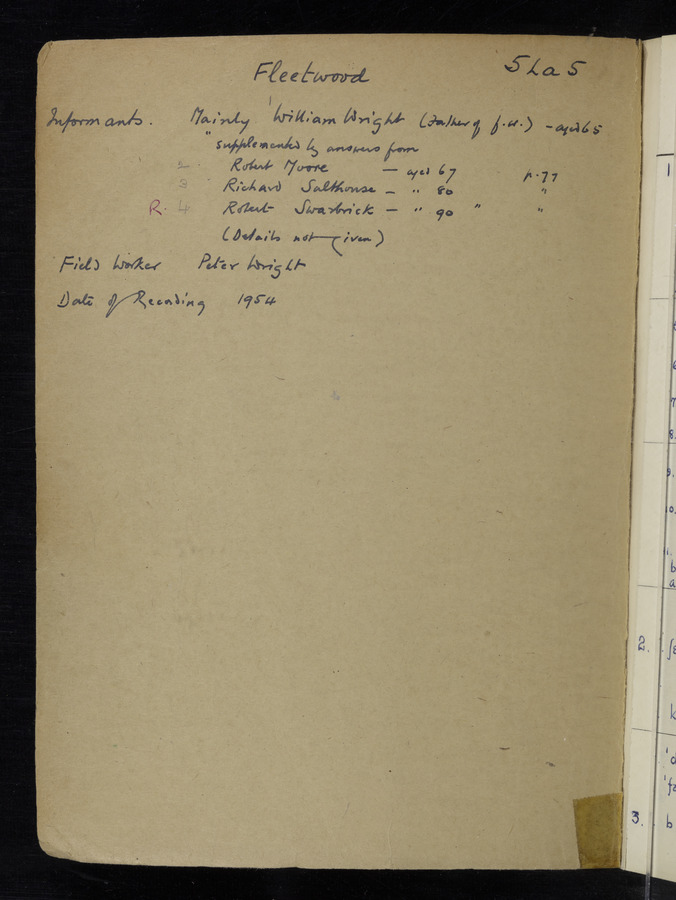 Fleetwood 5La5
Informants. Mainly 'William Wright (Father of f.w.) - aged 65
" supplemented by answers from
2. Robert Moore - aged 67 p.77
3 Richard Salthouse - " 80 "
R. 4 Robert Swarbrick - " 90 " "
(Details not given)
Field Worker Peter Wright
Date of Recording 1954
1
7
8.
9.
10.
b
a
2.
k
3. b